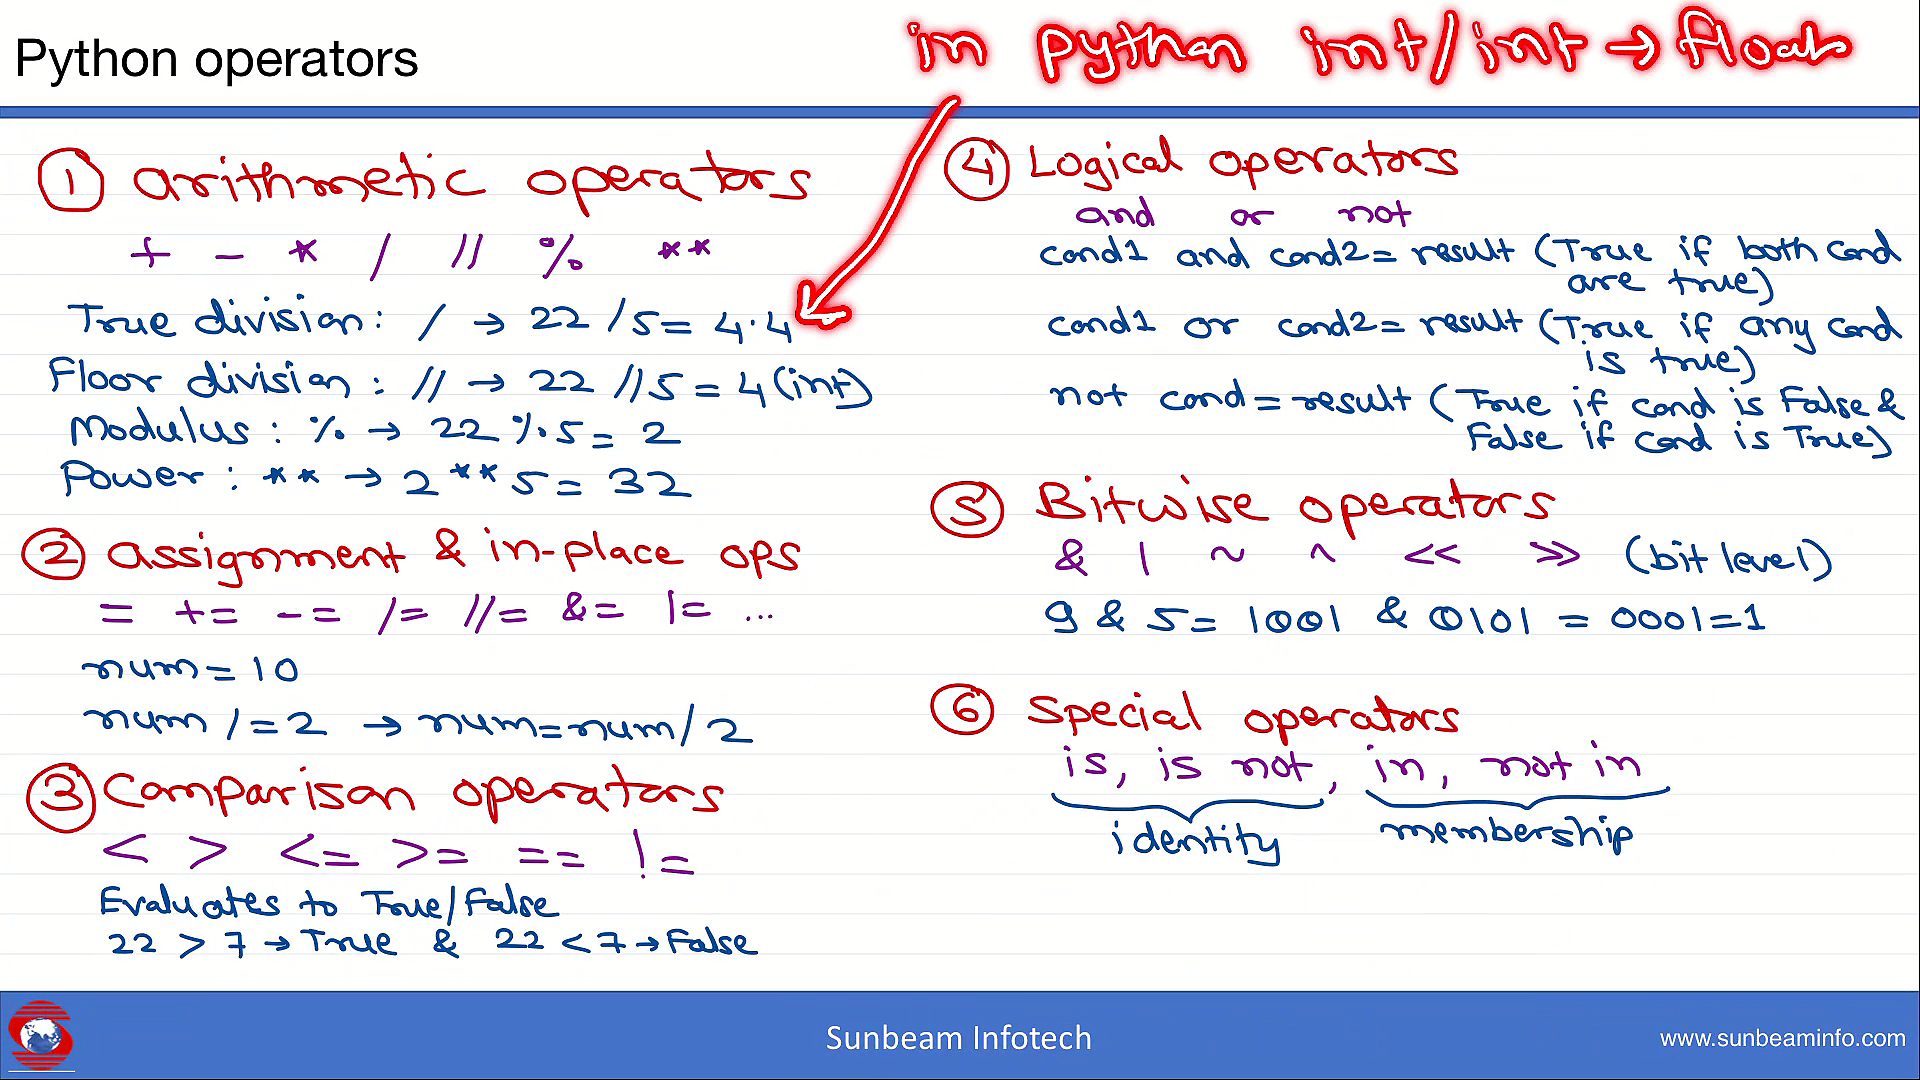 Python operators
in python int/int → float
① arithmetic operators
+ - * / // % **
True division: / → 22 / 5 = 4.4
Floor division: // → 22 // 5 = 4 (int)
Modulus: % → 22 % 5 = 2
Power: ** → 2 ** 5 = 32
② assignment & in-place ops
= += -= /= //= &= |= ...
num = 10
num /= 2 → num = num / 2
③ Comparison operators
< > <= >= == !=
Evaluates to True/False
22 > 7 → True & 22 < 7 → False
④ Logical operators
and or not
cond1 and cond2 = result (True if both cond
are true)
cond1 or cond2 = result (True if any cond
is true)
not cond = result (True if cond is False &
False if cond is True)
⑤ Bitwise operators
& | ~ ^ << >> (bit level)
9 & 5 = 1001 & 0101 = 0001 = 1
⑥ special operators
is, is not, in, not in
identity membership
Sunbeam Infotech
www.sunbeaminfo.com